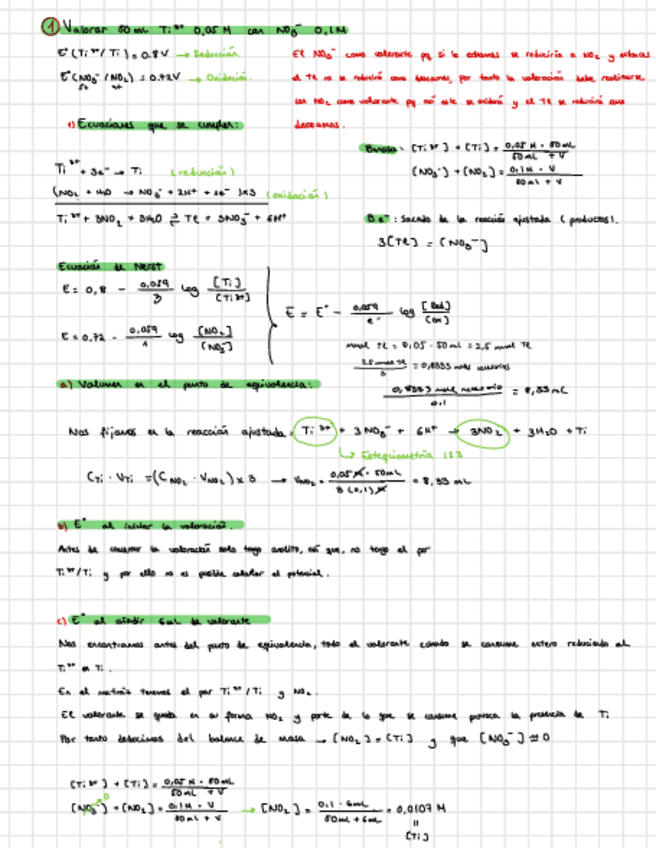 ① Valorar 50 mL Ti³⁺ 0,05 M con NO₃⁻ 0,1 M
E°(Ti³⁺/Ti) = 0,8V → Reducción
E°(NO₃⁻/NO₂) = 0,72V → Oxidación
El NO₃⁻ como valorante pq si le echamos se reduciría a NO₂ y entonces
el Te no se reduciría como buscamos, por tanto la valoración debe realizarse
con NO₂ como valorante pq así este se oxidará y el Te se reducirá que
deseamos.
1) Ecuaciones que se cumplen:
Bmasa: [Ti³⁺] + [Ti] = 0,05 M · 50 mL / 50 mL + V
[NO₃⁻] + [NO₂] = 0,1 M · V / 50 mL + V
Ti³⁺ + 3e⁻ → Ti (reducción)
(NO₂ + H₂O → NO₃⁻ + 2H⁺ + 1e⁻) x3 (oxidación)
Ti³⁺ + 3NO₂ + 3H₂O ⇄ Te + 3NO₃⁻ + 6H⁺
Be⁻: Sacado de la reacción ajustada (productos).
3[Te] = [NO₃⁻]
Ecuación de Nerst
E = 0,8 - 0,059/3 log [Ti]/[Ti³⁺]
E = 0,72 - 0,059/1 log [NO₂]/[NO₃⁻]
E = E° - 0,059/e⁻ log [Red]/[Ox]
mmol Te = 0,05 · 50 mL = 2,5 mmol Te
2,5 mmol Te / 3 = 0,8333
0,8333 / 0,1 = 8,33 mL
a) Volumen en el punto de equivalencia:
Nos fijamos en la reacción ajustada: Ti³⁺ + 3NO₃⁻ + 6H⁺ → 3NO₂ + 3H₂O + Ti
↳ Estequiometría 1:3
C_Ti · V_Ti = (C_NO₂ · V_NO₂) x 3 → V_NO₂ = 0,05 M · 50 mL / 3 (0,1) M = 8,33 mL
b) E° al iniciar la valoración.
Antes de comenzar la valoración solo tengo analito, así que, no tengo el par
Ti³⁺/Ti y por ello no es posible calcular el potencial.
c) E° al añadir 6mL de valorante
Nos encontramos antes del punto de equivalencia, todo el valorante echado se consume entero reduciendo el
Ti³⁺ en Ti.
En el matraz tenemos el par Ti³⁺/Ti y NO₂.
El valorante se queda en su forma NO₂ y parte de lo que se consume provoca la presencia de Ti
Por tanto deducimos del balance de masa → [NO₂] = [Ti] y que [NO₃⁻] ≅ 0
[Ti³⁺] + [Ti] = 0,05 M · 50 mL / 50 mL + V
[NO₃⁻]→0 + [NO₂] = 0,1 M · V / 50 mL + V → [NO₂] = 0,1 · 6mL / 50 mL + 6 mL = 0,0107 M
=
[Ti]